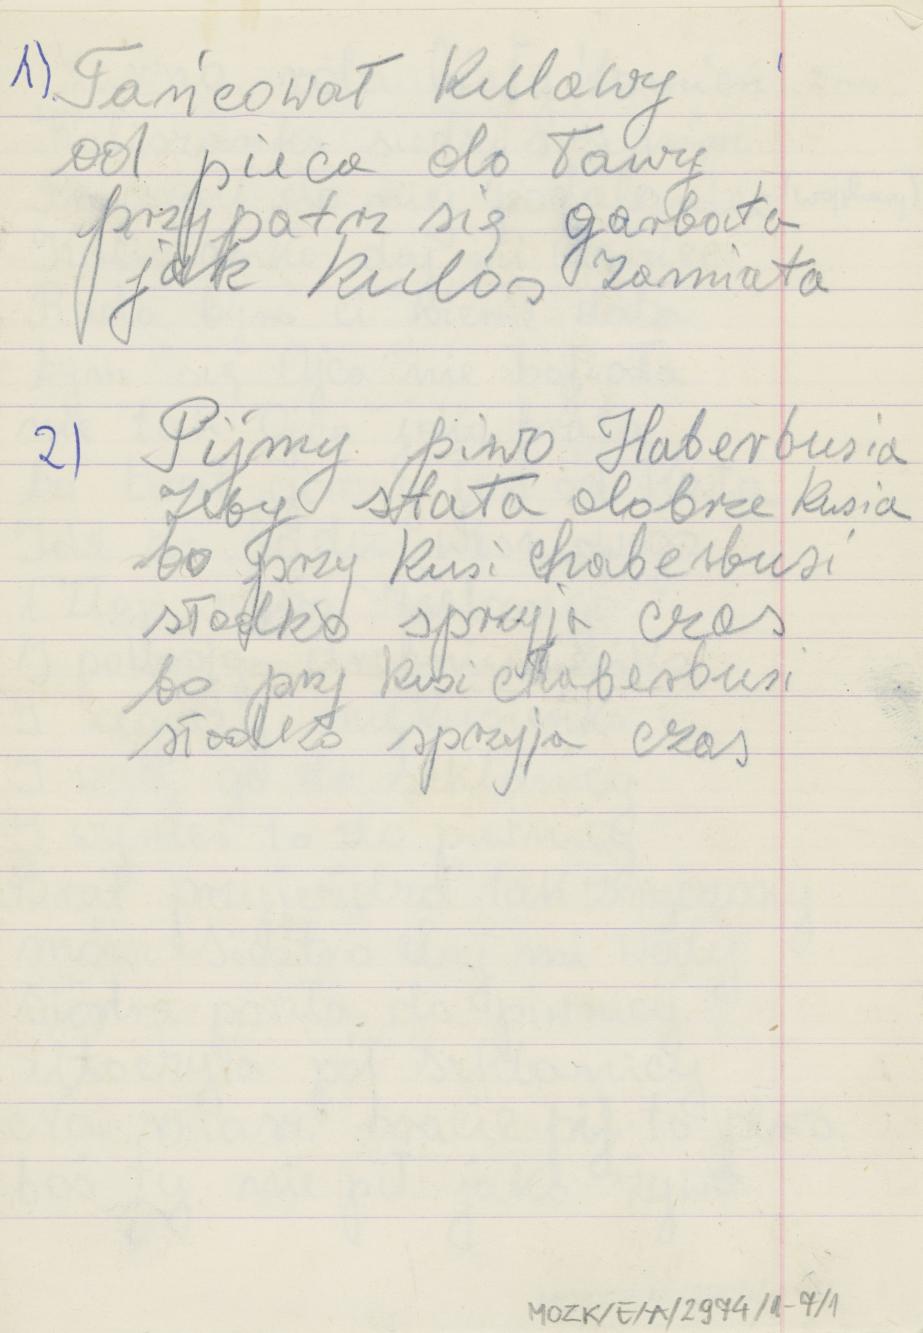 1) Tańcował Kulawy
od pieca do ławy
przypatrz się garbata
jak kulas zamiata
2) Pijmy piwo Haberbusia
żeby stała dobrze kusia
bo przy kusi chaberbusi
słodko sprzyja czas
bo przy kusi chaberbusi
słodko sprzyja czas
MOZK/E/A/2974/1-7/1